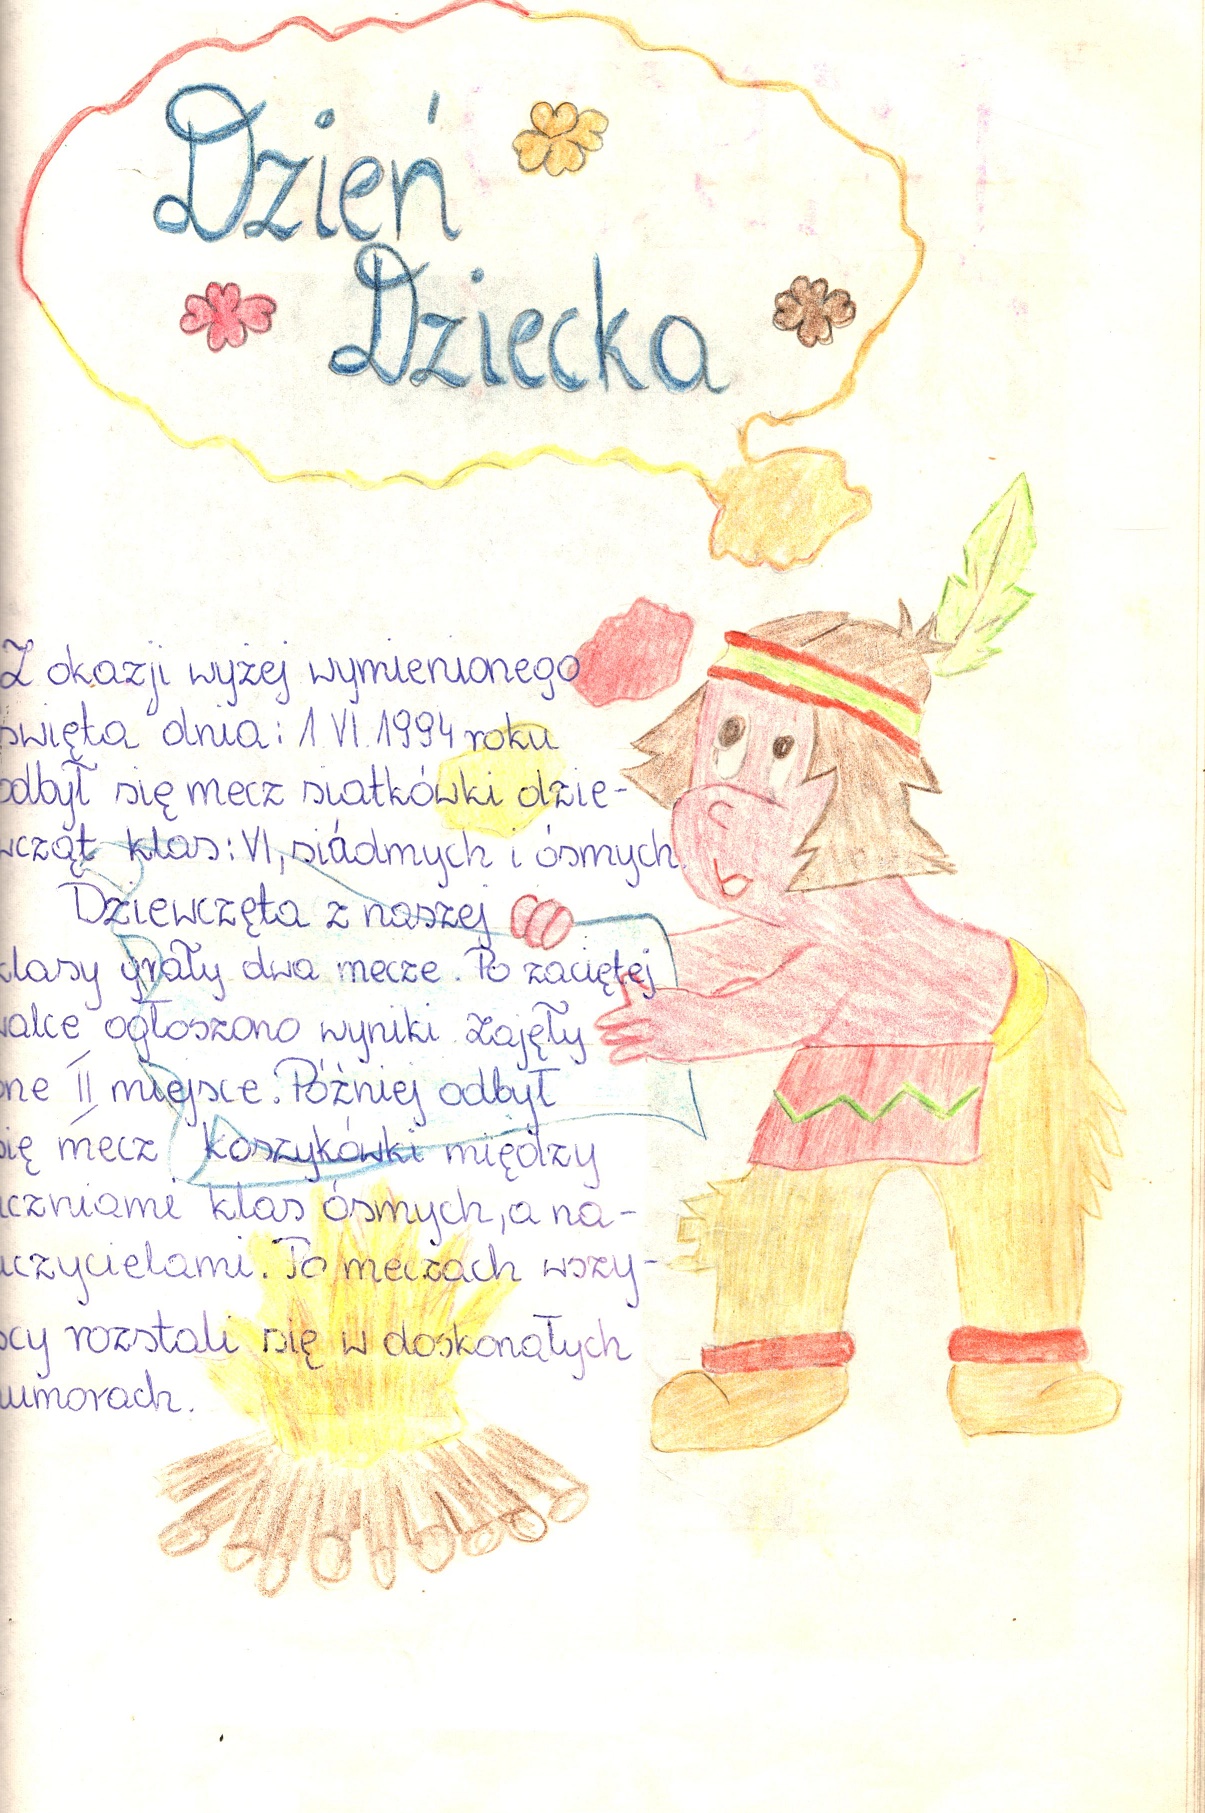 Dzień
Dziecka
Z okazji wyżej wymienionego
święta dnia: 1 VI 1994 roku
odbył się mecz siatkówki dzie-
wcząt klas: VI, siódmych i ósmych.
Dziewczęta z naszej
klasy grały dwa mecze. Po zaciętej
walce ogłoszono wyniki. Zajęły
one II miejsce. Później odbył
się mecz koszykówki między
uczniami klas ósmych, a na-
uczycielami. Po meczach wszy-
scy rozstali się w doskonałych
humorach.